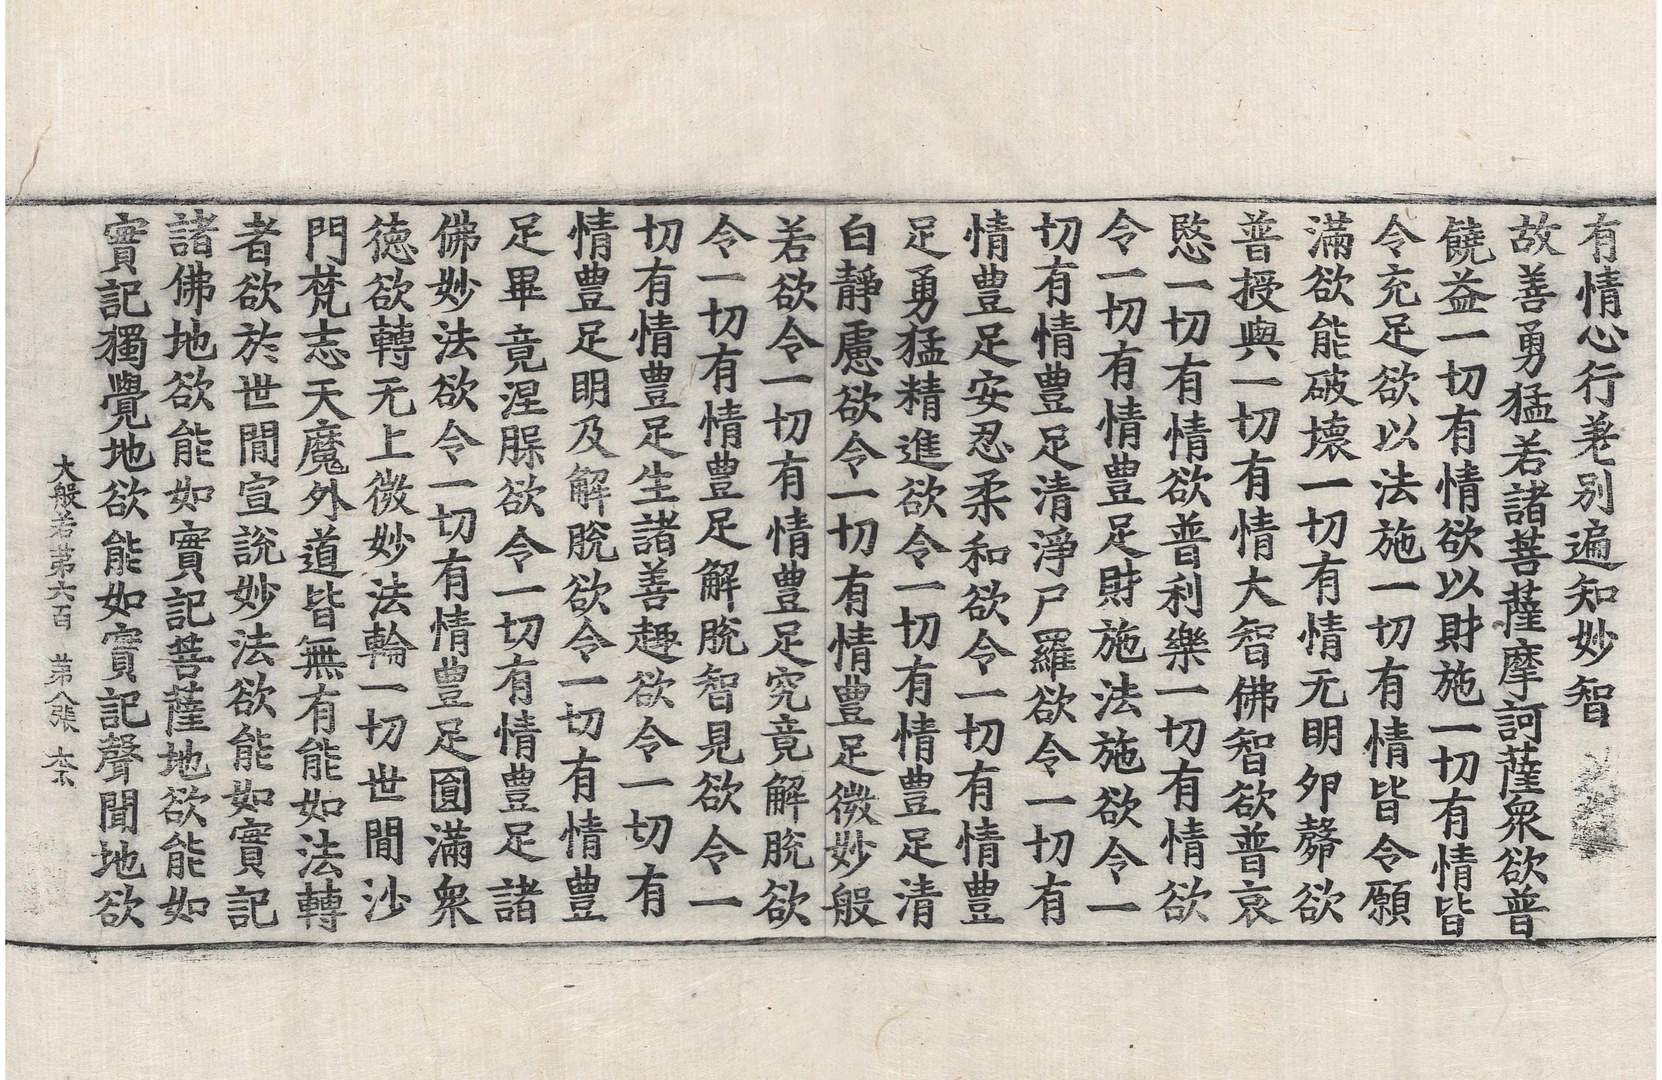 有情心行差別遍知妙智
故善勇猛若諸菩薩摩訶薩衆欲普
饒益一切有情欲以財施一切有情皆
令充足欲以法施一切有情皆令願
滿欲能破壞一切有情无明卵㲉欲
普授與一切有情大智佛智欲普哀
愍一切有情欲普利樂一切有情欲
令一切有情豊足財施法施欲令一
切有情豊足清淨尸羅欲令一切有
情豊足安忍柔和欲令一切有情豊
足勇猛精進欲令一切有情豊足清
白靜慮欲令一切有情豊足微妙般
若欲令一切有情豊足究竟解脫欲
令一切有情豊足解脫智見欲令一
切有情豊足生諸善趣欲令一切有
情豊足明及解脫欲令一切有情豊
足畢竟涅槃欲令一切有情豊足諸
佛妙法欲令一切有情豊足圓滿衆
德欲轉无上微妙法輪一切世間沙
門梵志天魔外道皆無有能如法轉
者欲於世間宣說妙法欲能如實記
諸佛地欲能如實記菩薩地欲能如
實記獨覺地欲能如實記聲聞地欲
大般若第六百 第八張